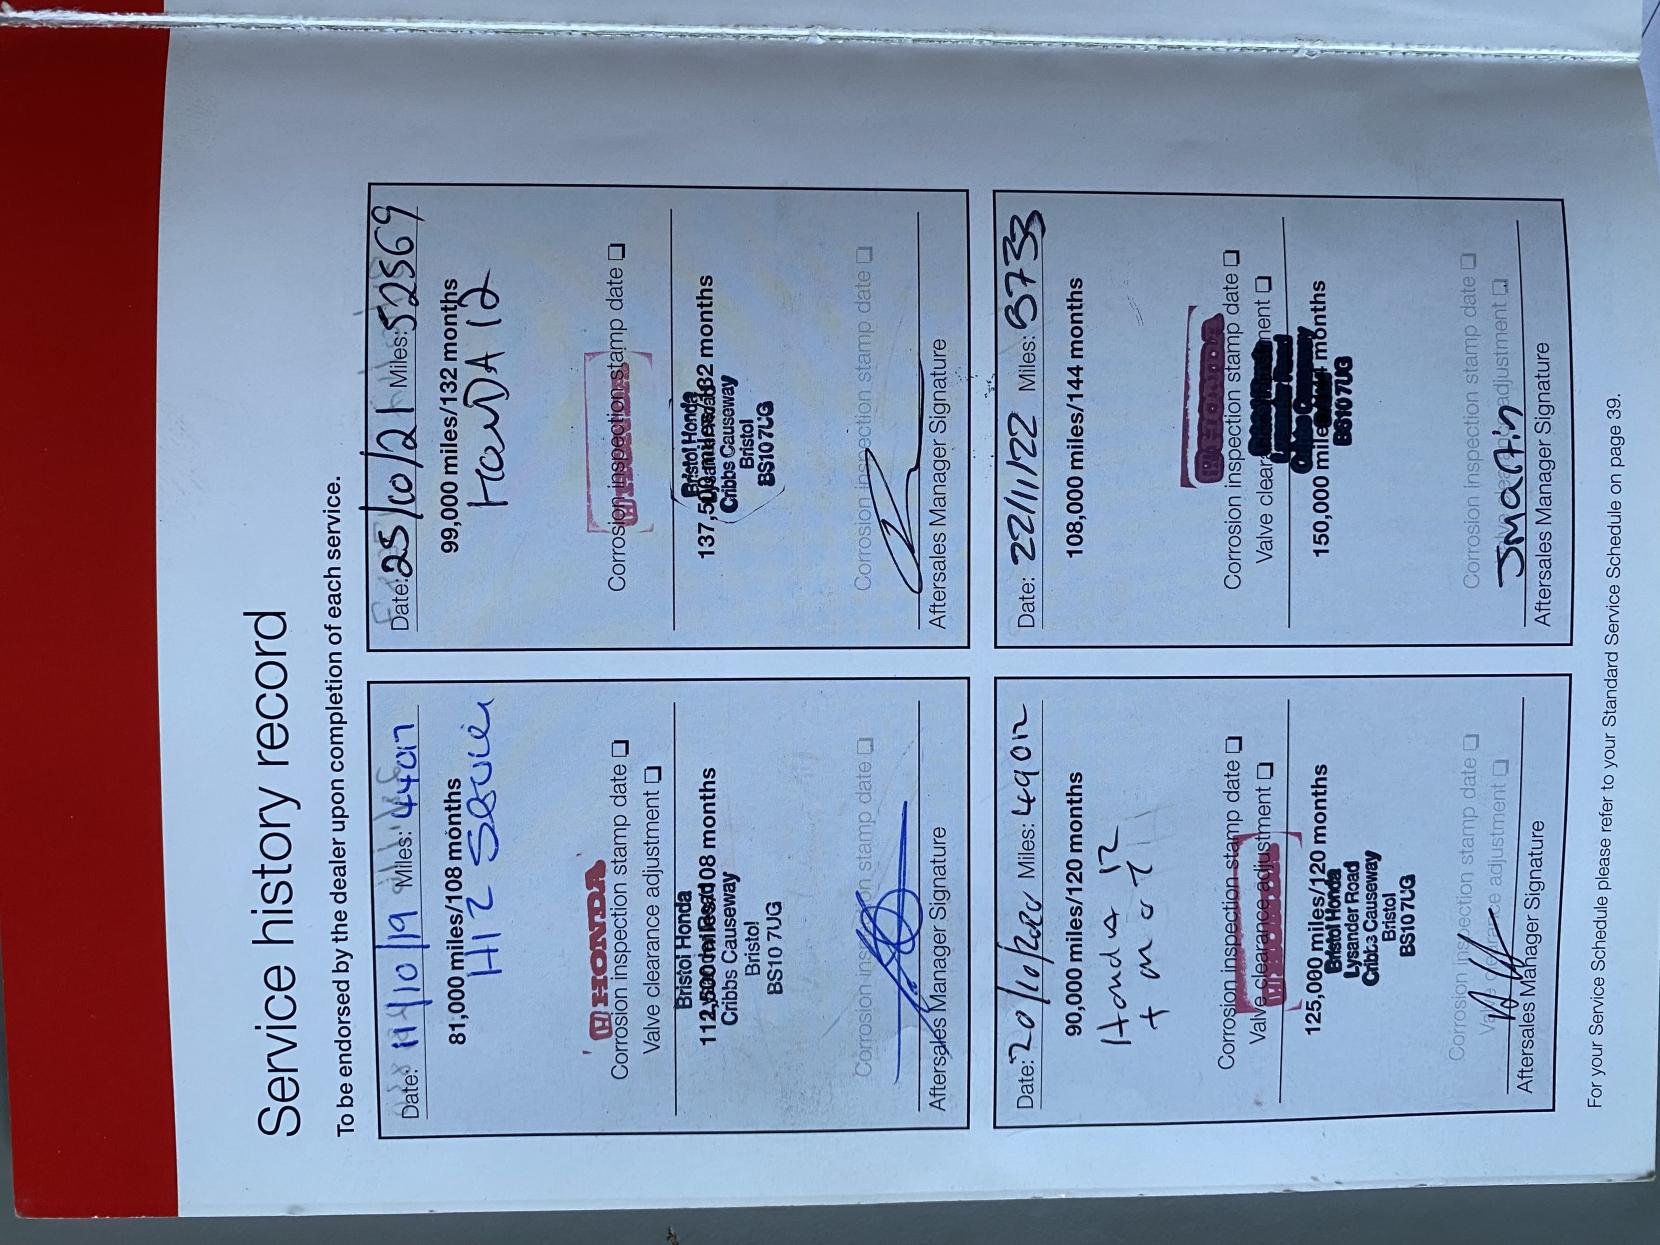 Service history record
To be endorsed by the dealer upon completion of each service.
Date: 11/10/19 Miles: 44017
81,000 miles/108 months
H12 Service
HONDA
Corrosion inspection stamp date
Valve clearance adjustment
Bristol Honda
112,500 miles/108 months
Cribbs Causeway
Bristol
BS10 7UG
Corrosion inspection stamp date
Aftersales Manager Signature
Date: 25/10/21 Miles: 52569
99,000 miles/132 months
HONDA 12
HONDA
Corrosion inspection stamp date
Bristol Honda
137,500 miles/132 months
Cribbs Causeway
Bristol
BS10 7UG
Corrosion inspection stamp date
Aftersales Manager Signature
Date: 20/10/2020 Miles: 49012
90,000 miles/120 months
Honda 12
+ mot
Corrosion inspection stamp date
Valve clearance adjustment
HONDA
125,000 miles/120 months
Bristol Honda
Lysander Road
Cribbs Causeway
Bristol
BS10 7UG
Corrosion inspection stamp date
Valve clearance adjustment
Aftersales Manager Signature
Date: 22/11/22 Miles:
108,000 miles/144 months
HONDA
Corrosion inspection stamp date
Valve clearance adjustment
150,000 miles/144 months
BS10 7UG
Corrosion inspection stamp date
adjustment
JMartin
Aftersales Manager Signature
For your Service Schedule please refer to your Standard Service Schedule on page 39.